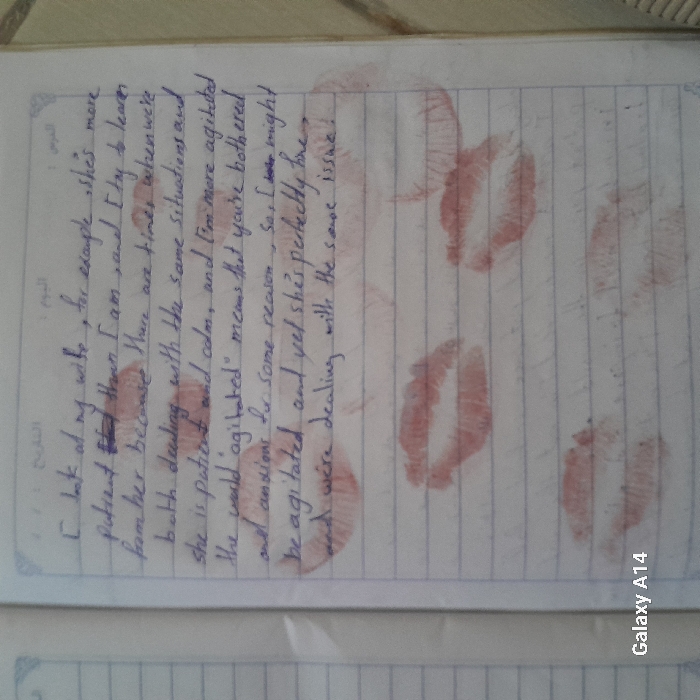 I look at my wife, for example, she's more
patient than I am, and I try to learn
from her because there are times when we're
both dealing with the same situations and
she is patient and calm, and I'm more agitated
the word "agitated" means that you're bothered
and anxious for some reason, so, I might
be agitated and yet she's perfectly fine
and we're dealing with the same issue!
التاريخ :
اليوم :
Galaxy A14